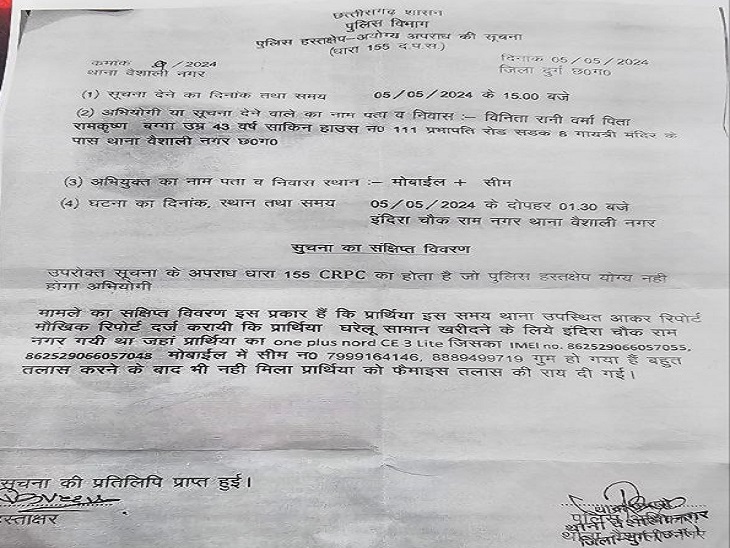 छत्तीसगढ़ शासन
पुलिस विभाग
पुलिस हस्तक्षेप–अयोग्य अपराध की सूचना
(धारा 155 द.प.स)
कमांक /2024
दिनांक 05/05/2024
थाना वैशाली नगर
जिला दुर्ग छ0ग0
(1) सूचना देने का दिनांक तथा समय 05/05/2024 के 15.00 बजे
(2) अभियोगी या सूचना देने वाले का नाम पता व निवास :– विनिता रानी वर्मा पिता
रामकृष्ण बग्गा उम्र 43 वर्ष साकिन हाउस न0 111 प्रभापति रोड सडक 8 गायत्री मंदिर के
पास थाना वैशाली नगर छ0ग0
(3) अभियुक्त का नाम पता व निवास स्थान :– मोबाईल + सीम
(4) घटना का दिनांक, स्थान तथा समय 05/05/2024 के दोपहर 01.30 बजे
इंदिरा चौक राम नगर थाना वैशाली नगर
सुचना का संक्षिप्त विवरण
उपरोक्त सूचना के अपराध धारा 155 CRPC का होता है जो पुलिस हस्तक्षेप योग्य नही
होगा अभियोगी
मामले का सक्षिप्त विवरण इस प्रकार हैं कि प्रार्थिया इस समय थाना उपस्थित आकर रिपोर्ट
मौखिक रिपोर्ट दर्ज करायी कि प्रार्थिया घरेलू सामान खरीदने के लिये इंदिरा चौक राम
नगर गयी था जहां प्रार्थिया का one plus nord CE 3 Lite जिसका IMEI no. 862529066057055,
862529066057048 मोबाईल में सीम न0 7999164146, 8889499719 गुम हो गया हैं बहुत
तलास करने के बाद भी नही मिला प्रार्थिया को फैमाइस तलास की राय दी गई।
सूचना की प्रतिलिपि प्राप्त हुई।
हस्ताक्षर